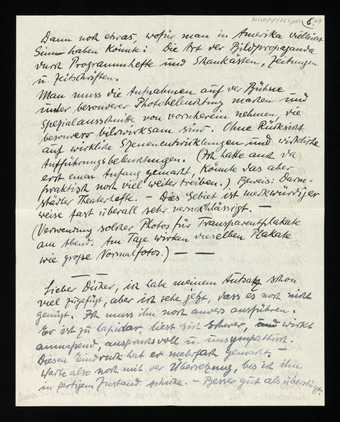 Dann noch etwas, wofür man in Amerika vielleicht
Sinn haben könnte: Die Art der Bildpropaganda
durch Programmhefte und Schaukästen, Zeitungen
u Zeitschriften.
Man muss die Aufnahmen auf der Bühne
unter besonderer Photobeleuchtung machen und
Spezialausschnitte von vornherein nehmen, die
besonders bildwirksam sind. Ohne Rücksicht
auf wirkliche Szenenentwicklungen und wirkliche
Aufführungsbeleuchtungen. (Ich hatte auch da
erst einen Anfang gemacht, könnte das aber
praktisch noch viel weiter treiben.) Beweis: Darm-
städter Theaterhefte. – Dies Gebiet ist merkwürdiger
weise fast überall sehr vernachlässigt. —
(Verwendung solcher Photos für Transparentplakate
am Abend. Am Tage wirken dieselben Plakate
wie große Normalfotos.) —
Lieber Dicker, ich habe meinem Aufsatz schon
viel zugefügt, aber ich sehe jetzt, dass es noch nicht
genügt. Ich muss ihn noch anders ausführen.
Er ist zu lapidar, liest sich schwer, und wirkt
anmassend, anspruchsvoll u unsympathisch.
Diesen Eindruck hat er mehrfach gemacht. –
Warte also noch mit der Übersetzung, bis ich ihn
in fertigem Zustand schicke. – Besser gut als überstürzt.